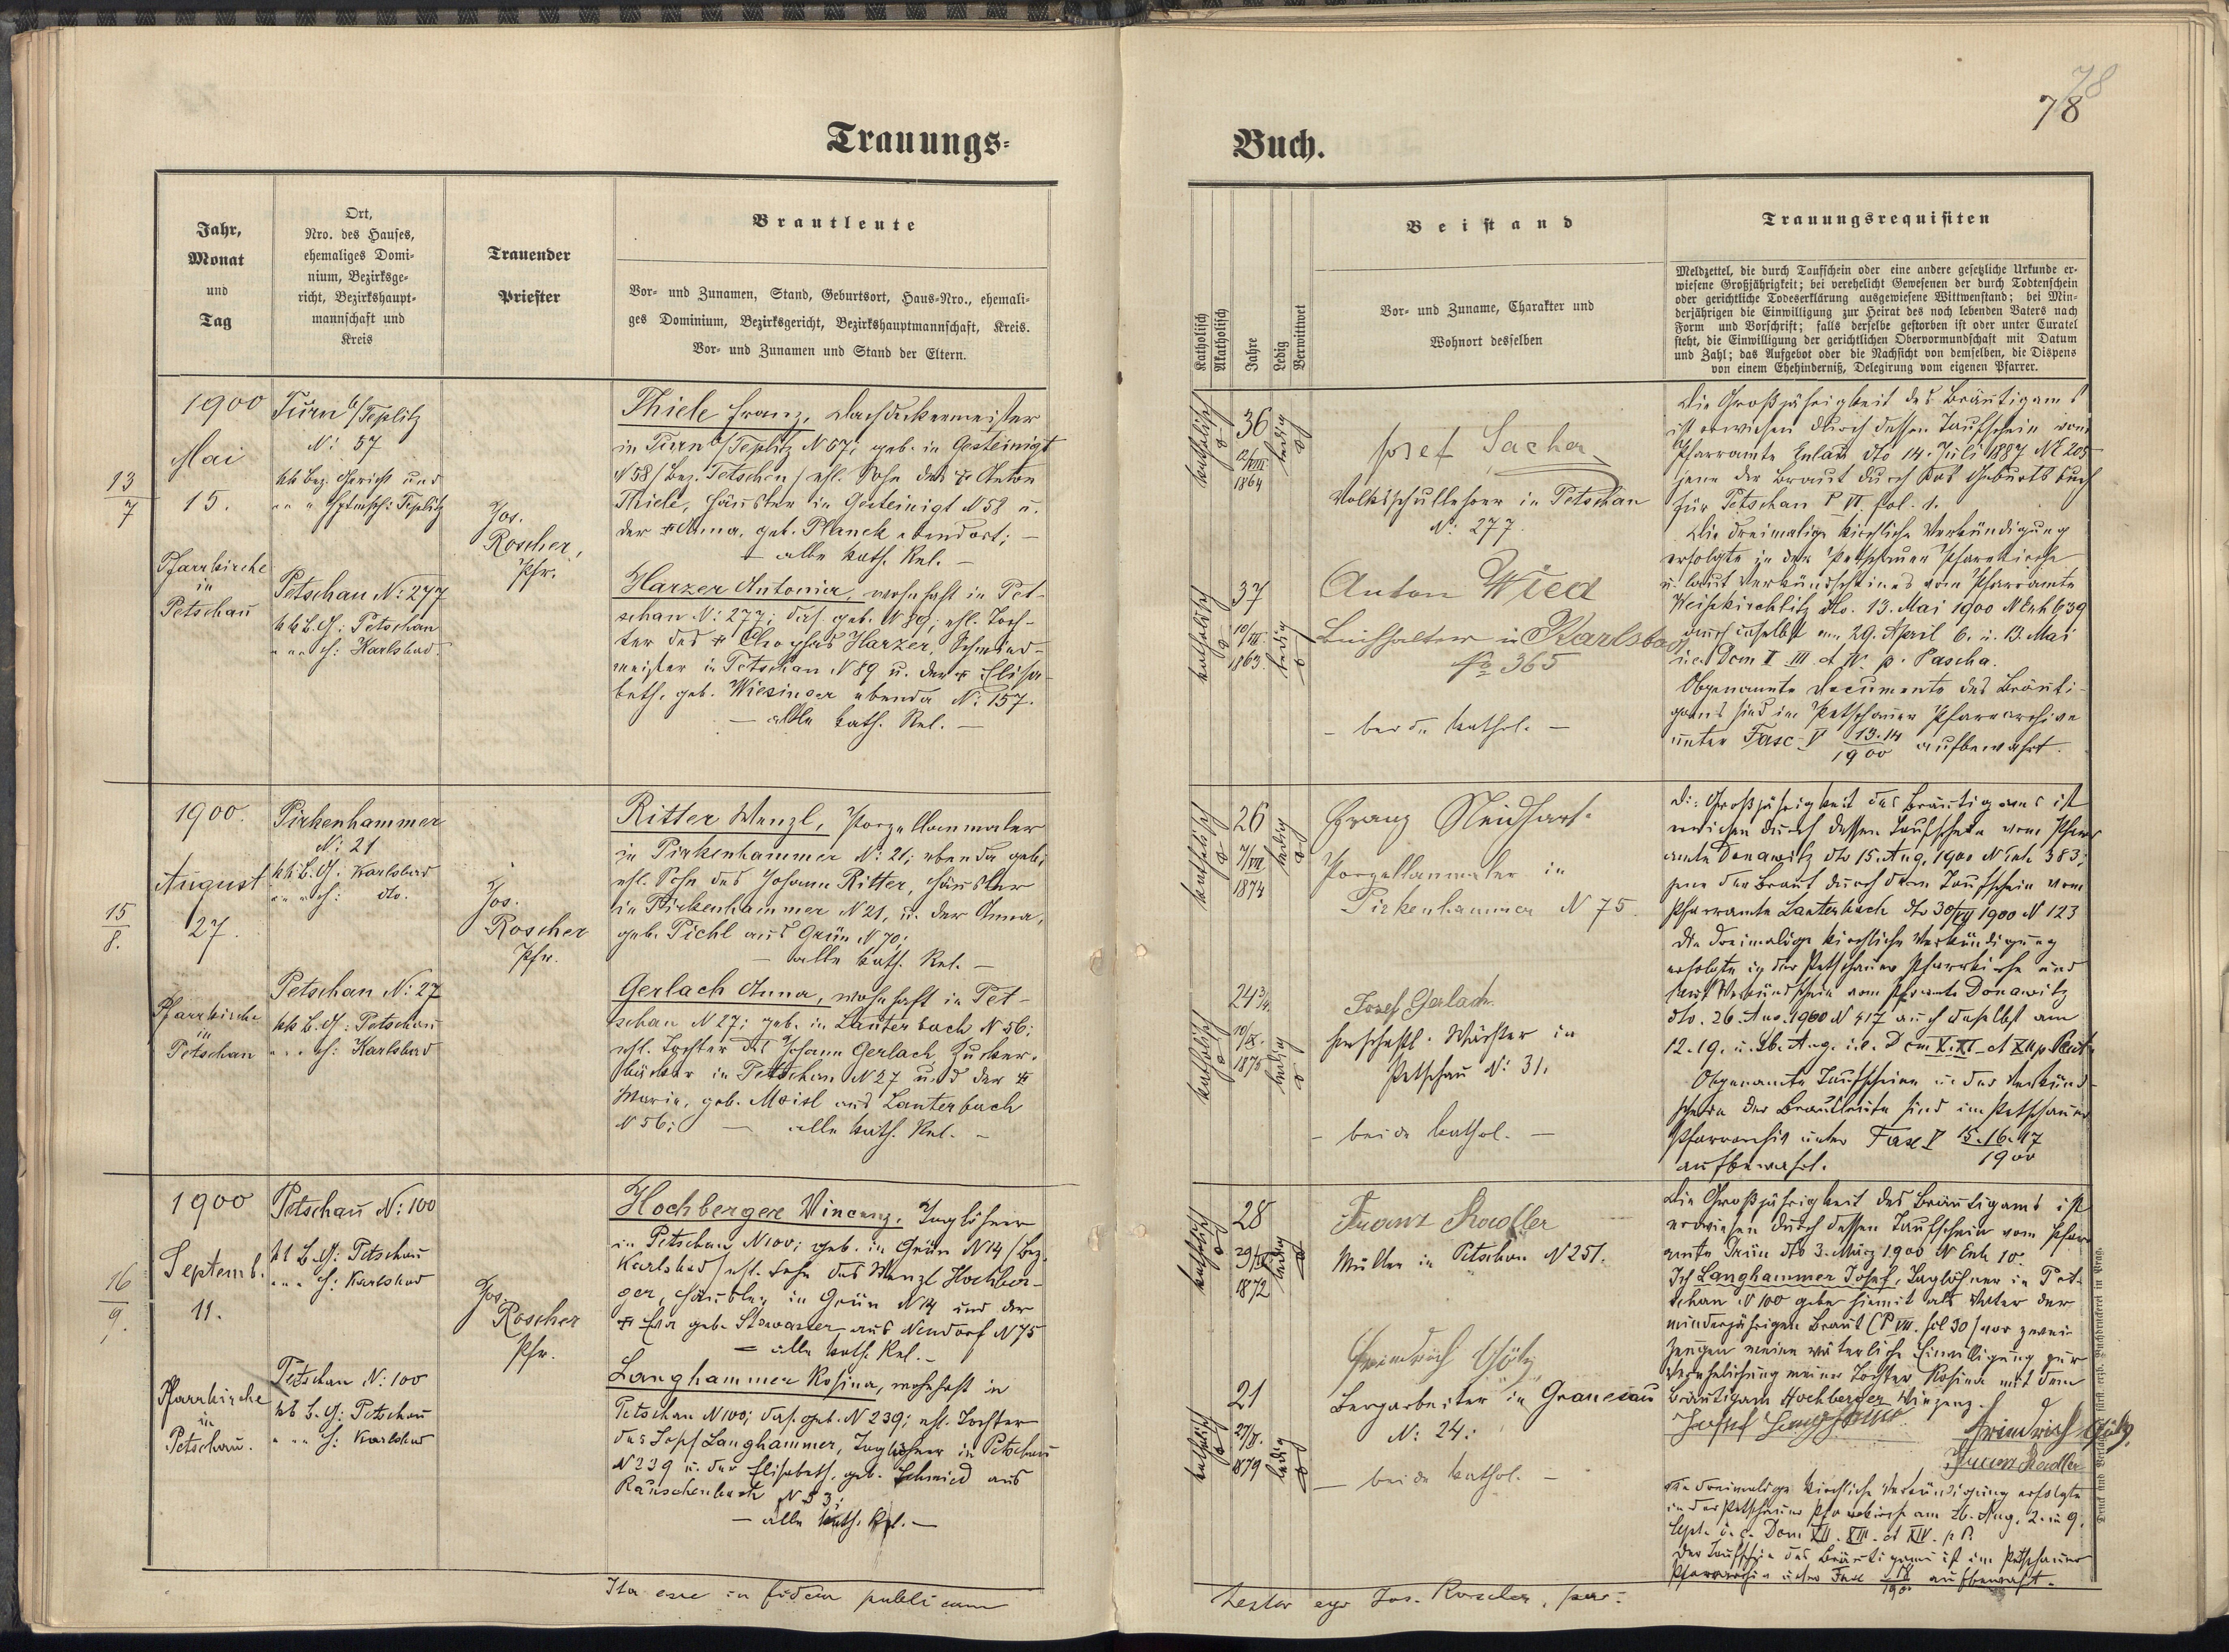 78
78
Trauungs-
Buch.
Jahr,
Monat
und
Tag
Ort,
Nro. des Hauses,
ehemaliges Domi-
nium, Bezirksge-
richt, Bezirkshaupt-
mannschaft und
Kreis
Trauender
Priester
Brautleute
Vor- und Zunamen, Stand, Geburtsort, Haus-Nro., ehemali-
ges Dominium, Bezirksgericht, Bezirkshauptmannschaft, Kreis.
Vor- und Zunamen und Stand der Eltern.
Katholisch
Akatholisch
Jahre
Ledig
Verwittwet
Beistand
Vor- und Zuname, Charakter und
Wohnort desselben
Trauungsrequisiten
Meldzettel, die durch Taufschein oder eine andere gesetzliche Urkunde er-
wiesene Großjährigkeit; bei verehelicht Gewesenen der durch Todtenschein
oder gerichtliche Todeserklärung ausgewiesene Wittwenstand; bei Min-
derjährigen die Einwilligung zur Heirat des noch lebenden Vaters nach
Form und Vorschrift; falls derselbe gestorben ist oder unter Curatel
steht, die Einwilligung der gerichtlichen Obervormundschaft mit Datum
und Zahl; das Aufgebot oder die Nachsicht von demselben, die Dispens
von einem Ehehinderniß, Delegirung vom eigenen Pfarrer.
13
7
1900
Mai
15.
Pfarrkirche
in
Petschau
Turn b/Teplitz
N: 57
kk Bez. Gericht und
" " Hptmsch: Teplitz
Petschau N: 277
kk B. G: Petschau
" " " H: Karlsbad.
Jos.
Roscher,
Pfr.
Thiele Franz, Dachdeckermeister
in Turn b/Teplitz N 57; geb. in Gesteinigt
N 58 / Bez. Tetschen / ehl. Sohn des + Anton
Thiele, Häusler in Gesteinigt N 58 u.
der + Anna, geb. Planck ebendort; —
— alle kath. Rel. —
Harzer Antonia, wohnhaft in Pet-
schau N: 277; das. geb. N 89; ehl. Toch-
ter des + Harzer, Schmied-
meister in Petschau N 89 u. der + Elisa-
beth, geb. Wiesinger ebenda N: 157.
— alle kath. Rel. —
katholisch
36
12/VIII
1864
ledig
Josef Sacher
Volksschullehrer in Petschau
N: 277.
katholisch
37
10/III.
1863.
ledig
Anton Wied
Buchhalter in Karlsbad
No 365
— beide kathol. —
Die Großjährigkeit des Bräutigams
ist erwiesen durch dessen Taufschein vom
Pfarramte Eulau dto 14. Juli 1887 NE 205
jene der Braut durch das Geburtsbuch
für Petschau P VI. fol. 1.
Die dreimalige kirchliche Verkündigung
erfolgte in der Petschauer Pfarrkirche
u. laut Verkündscheines vom Pfarramte
Weißkirchlitz dto. 13. Mai 1900 N Exh 639
auch daselbst am 29. April 6. u. 13. Mai
i. e. Dom II III et IV. p. Pascha.
Obgenannte Documente des Bräuti-
gams sind im Petschauer Pfarrarchive
unter Fasc V 13.14 aufbewahrt.
1900
15
8.
1900.
August
27.
Pfarrkirche
in
Petschau
Pirkenhammer
N: 21
kk B. G. Karlsbad
" " " H: dto.
Petschau N: 27
kk B. G: Petschau
" " " H: Karlsbad
Jos.
Roscher
Pfr.
Ritter Wenzl, Porzellanmaler
in Pirkenhammer N: 21; ebenda geb.;
ehl. Sohn des Johann Ritter, Häusler
in Pirkenhammer N 21, u. der Anna,
geb. Pichl aus Grün N 70;
— alle kath. Rel. —
Gerlach Anna, wohnhaft in Pet-
schau N 27; geb. in Lauterbach N 56;
ehl. Tochter des Johann Gerlach, Zucker-
bäcker in Petschau N 27 und der +
Maria, geb. Moisl aus Lauterbach
N 56; — alle kath. Rel. —
katholisch
26
7/VII
1874
ledig
Franz Neidhart
Porzellanmaler in
Pirkenhammer N 75.
katholisch
24 3/4.
10/IX.
1875
ledig
Josef Gerlach
herrschaftl. Wächter in
Petschau N: 31.
— beide kathol. —
Die Großjährigkeit des Bräutigams ist
erwiesen durch dessen Taufschein vom Pfarr
amte Donawitz dto 15. Aug. 1900 N Exh 383;
jene der Braut durch deren Taufschein vom
Pfarramte Lauterbach dto 30/VII 1900 N 123
Die dreimalige kirchliche Verkündigung
erfolgte in der Petschauer Pfarrkirche und
laut Verkündschein vom Pfarramte Donawitz
dto. 26. Aug. 1900 N 417 auch daselbst am
12. 19. u. 26. Aug. i. e. Dom X. XI et XII p. Pent.
Obgenannte Taufscheine u. der Verkünd-
schein der Brautleute sind im Petschauer
Pfarrarchiv unter Fasc V 15.16.17
1900
aufbewahrt.
16
9.
1900
Septemb.
11.
Pfarrkirche
in
Petschau.
Petschau N: 100
kk B. G: Petschau
" " " H: Karlsbad
Petschau N: 100
kk B. G: Petschau
" " " H: Karlsbad
Jos.
Roscher
Pfr.
Hochberger Vincenz, Taglöhner
in Petschau N 100; geb. in Grün N 14 / Bez.
Karlsbad / ehl. Sohn des Wenzl Hochber-
ger, Häusler in Grün N 14 und der
+ Eva geb. Stowasser aus Neudorf N 75
— alle kath. Rel. —
Langhammer Rosina, wohnhaft in
Petschau N 100; das. geb. N 239; ehl. Tochter
des Josef Langhammer, Taglöhner in Petschau
N 239 u. der Elisabeth, geb. Schmied aus
Rauschenbach N 53;
— alle kath. Rel. —
katholisch
28
1872
ledig
Franz Stadler
Müller in Petschau N 251.
katholisch
21
1879
ledig
Friedrich Götz
Bergarbeiter in Granesau
N: 24.
— beide kathol. —
Die Großjährigkeit des Bräutigams ist
erwiesen durch dessen Taufschein vom Pfarr
amte Grün dto 3. März 1900 N Exh 10.
Ich Langhammer Josef, Taglöhner in Pet-
schau N 100 gebe hiemit als Vater der
minderjährigen Braut (P VII. fol 30) vor zwei
Zeugen meine väterliche Einwilligung zur
Verehelichung meiner Tochter Rosina mit dem
Bräutigam Hochberger Vinzenz.
Josef Langhammer
Friedrich Götz
Franz Stadler
Die dreimalige kirchliche Verkündigung erfolgte
in der Petschauer Pfarrkirche am 26. Aug. 2. u 9.
Sept. i. e. Dom XII. XIII. et XIV. p. P.
Der Taufschein des Bräutigams ist im Petschauer
Pfarrarchiv unter Fasc V 18 aufbewahrt.
1900
Ita esse in fidem publicam
testor ego Jos. Roscher, par: